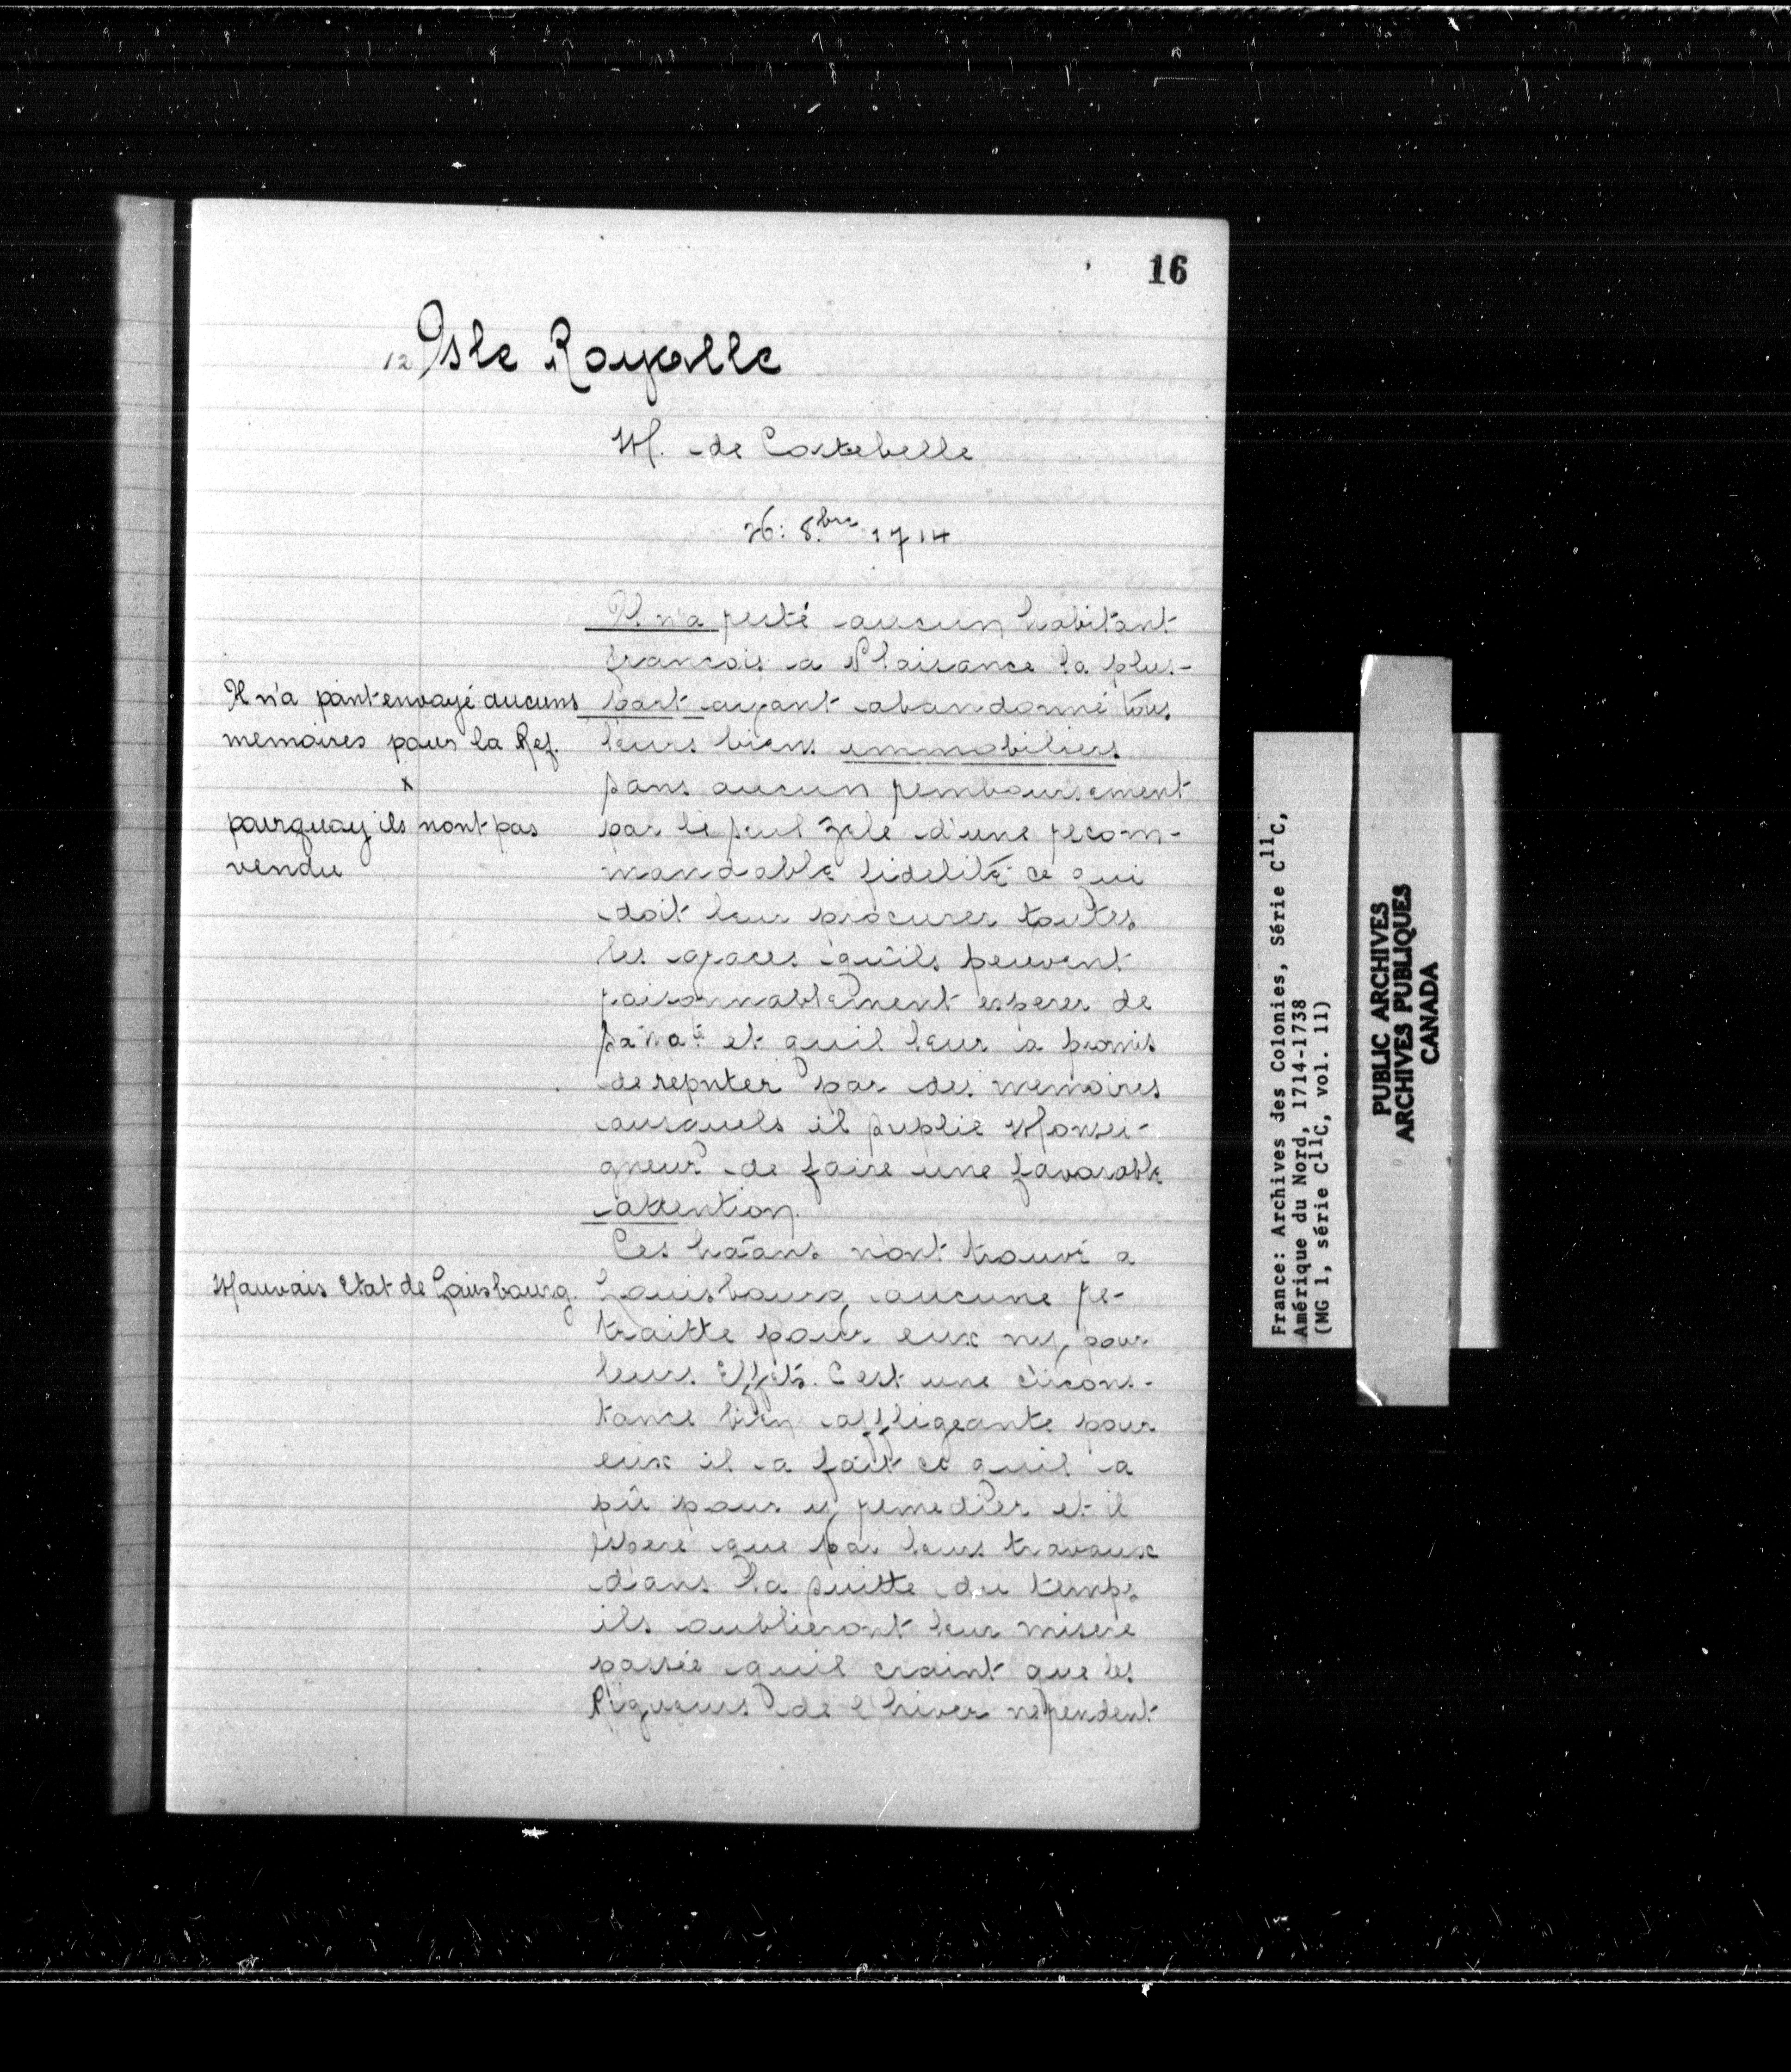 16
12 Isle Royalle
M. de Costebelle
26: 8.bre 1714
Il n'a resté aucun habitant
francois a Plaisance la plus-
part ayant abandonné tous
leurs biens immobiliers
sans aucun remboursement
par le seul Zele d'une recom-
mandable fidelité ce qui
doit leur procurer toutes
les graces qu'ils peuvent
raisonnablement esperer de
sa ma.é et quil leur a promis
de reputer par des memoires
ausquels il suplie Monsei-
gneur de faire une favorable
attention.
Il n'a point envoyé aucuns
memoires pour la Ref.
x
pourquoy ils nont pas
vendu
Ces ha͠ans n'ont trouvé a
Louisbourg aucune re-
traitte pour eux ny pour
leurs Effets. C'est une circons-
tance bien affligeante pour
eux il a fait ce quil a
pû pour y remedier et il
espere que par leurs travaux
dans la suitte du temps
ils oublieront leur misere
passée quil craint que les
Rigueurs de l'hiver ne rendent
Mauvais Etat de Louisbourg.
France: Archives des Colonies, Série C11C,
Amérique du Nord, 1714-1738
(MG 1, série C11C, vol. 11)
PUBLIC ARCHIVES
ARCHIVES PUBLIQUES
CANADA